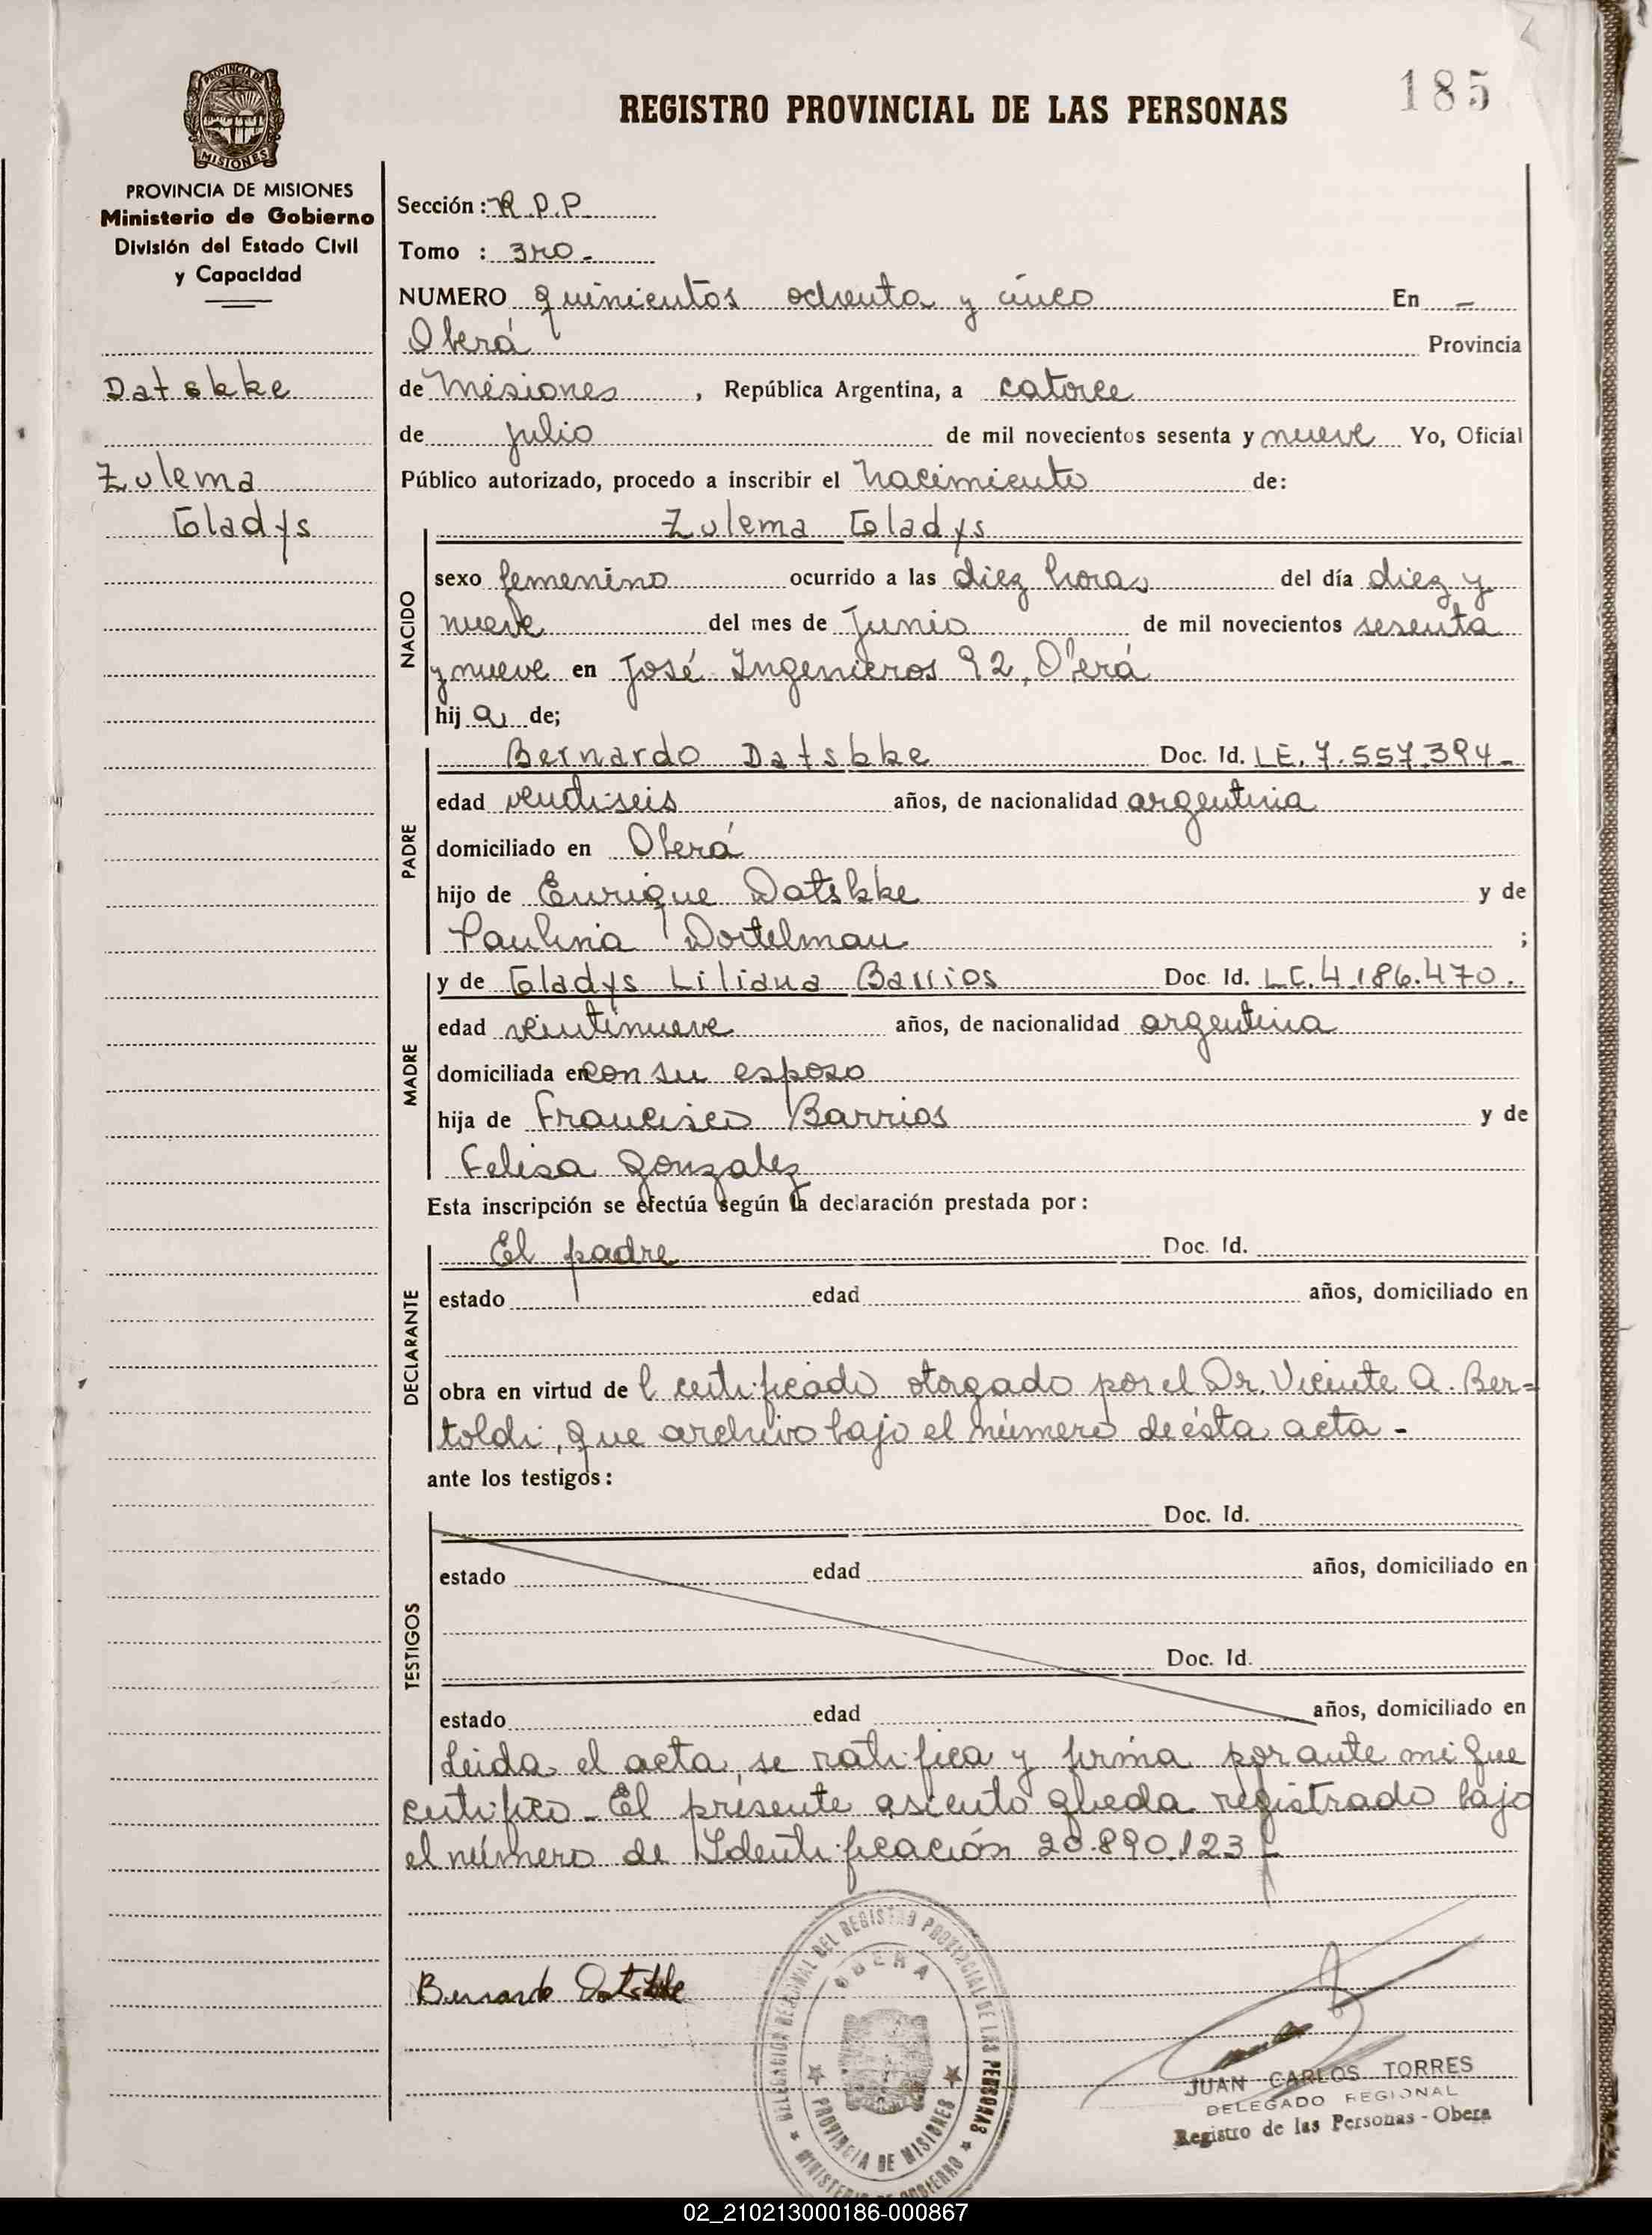 185
REGISTRO PROVINCIAL DE LAS PERSONAS
PROVINCIA DE MISIONES
MISIONES
PROVINCIA DE MISIONES
Ministerio de Gobierno
División del Estado Civil
y Capacidad
Datskke
Zulema
Gladys
Sección: R.P.P.
Tomo : 3ro.-
NUMERO quinientos ochenta y cinco En -
Oberá Provincia
de Misiones, República Argentina, a catorce
de julio de mil novecientos sesenta y nueve Yo, Oficial
Público autorizado, procedo a inscribir el nacimiento de:
NACIDO
Zulema Gladys
sexo femenino ocurrido a las diez horas del día diez y
nueve del mes de Junio de mil novecientos sesenta
y nueve en José Ingenieros 92, Oberá
hija de;
PADRE
Bernardo Datskke Doc. Id. LE. 7.557.394-
edad veintiseis años, de nacionalidad argentina
domiciliado en Oberá
hijo de Enrique Datskke y de
Paulina ;
MADRE
y de Gladys Liliana Barrios Doc. Id. LC. 4.186.470.
edad veintinueve años, de nacionalidad argentina
domiciliada en con su esposo
hija de Francisco Barrios y de
Felisa Gonzalez
Esta inscripción se efectúa según la declaración prestada por:
DECLARANTE
El padre Doc. Id.
estado edad años, domiciliado en
obra en virtud del certificado otorgado por el Dr. Vicente A. Ber=
toldi, que archivo bajo el número de ésta acta -
ante los testigos:
TESTIGOS
Doc. Id.
estado edad años, domiciliado en
Doc. Id.
estado edad años, domiciliado en
Leida el acta, se ratifica y firma por ante mi que
certifico - El presente asiento queda registrado bajo
el número de Identificación 20.890.123-
Bernardo Datskke
DELEGACION REGIONAL DEL REGISTRO PROVINCIAL DE LAS PERSONAS
OBERA
PROVINCIA DE MISIONES
MINISTERIO DE GOBIERNO
JUAN CARLOS TORRES
DELEGADO REGIONAL
Registro de las Personas - Obera
02_210213000186-000867